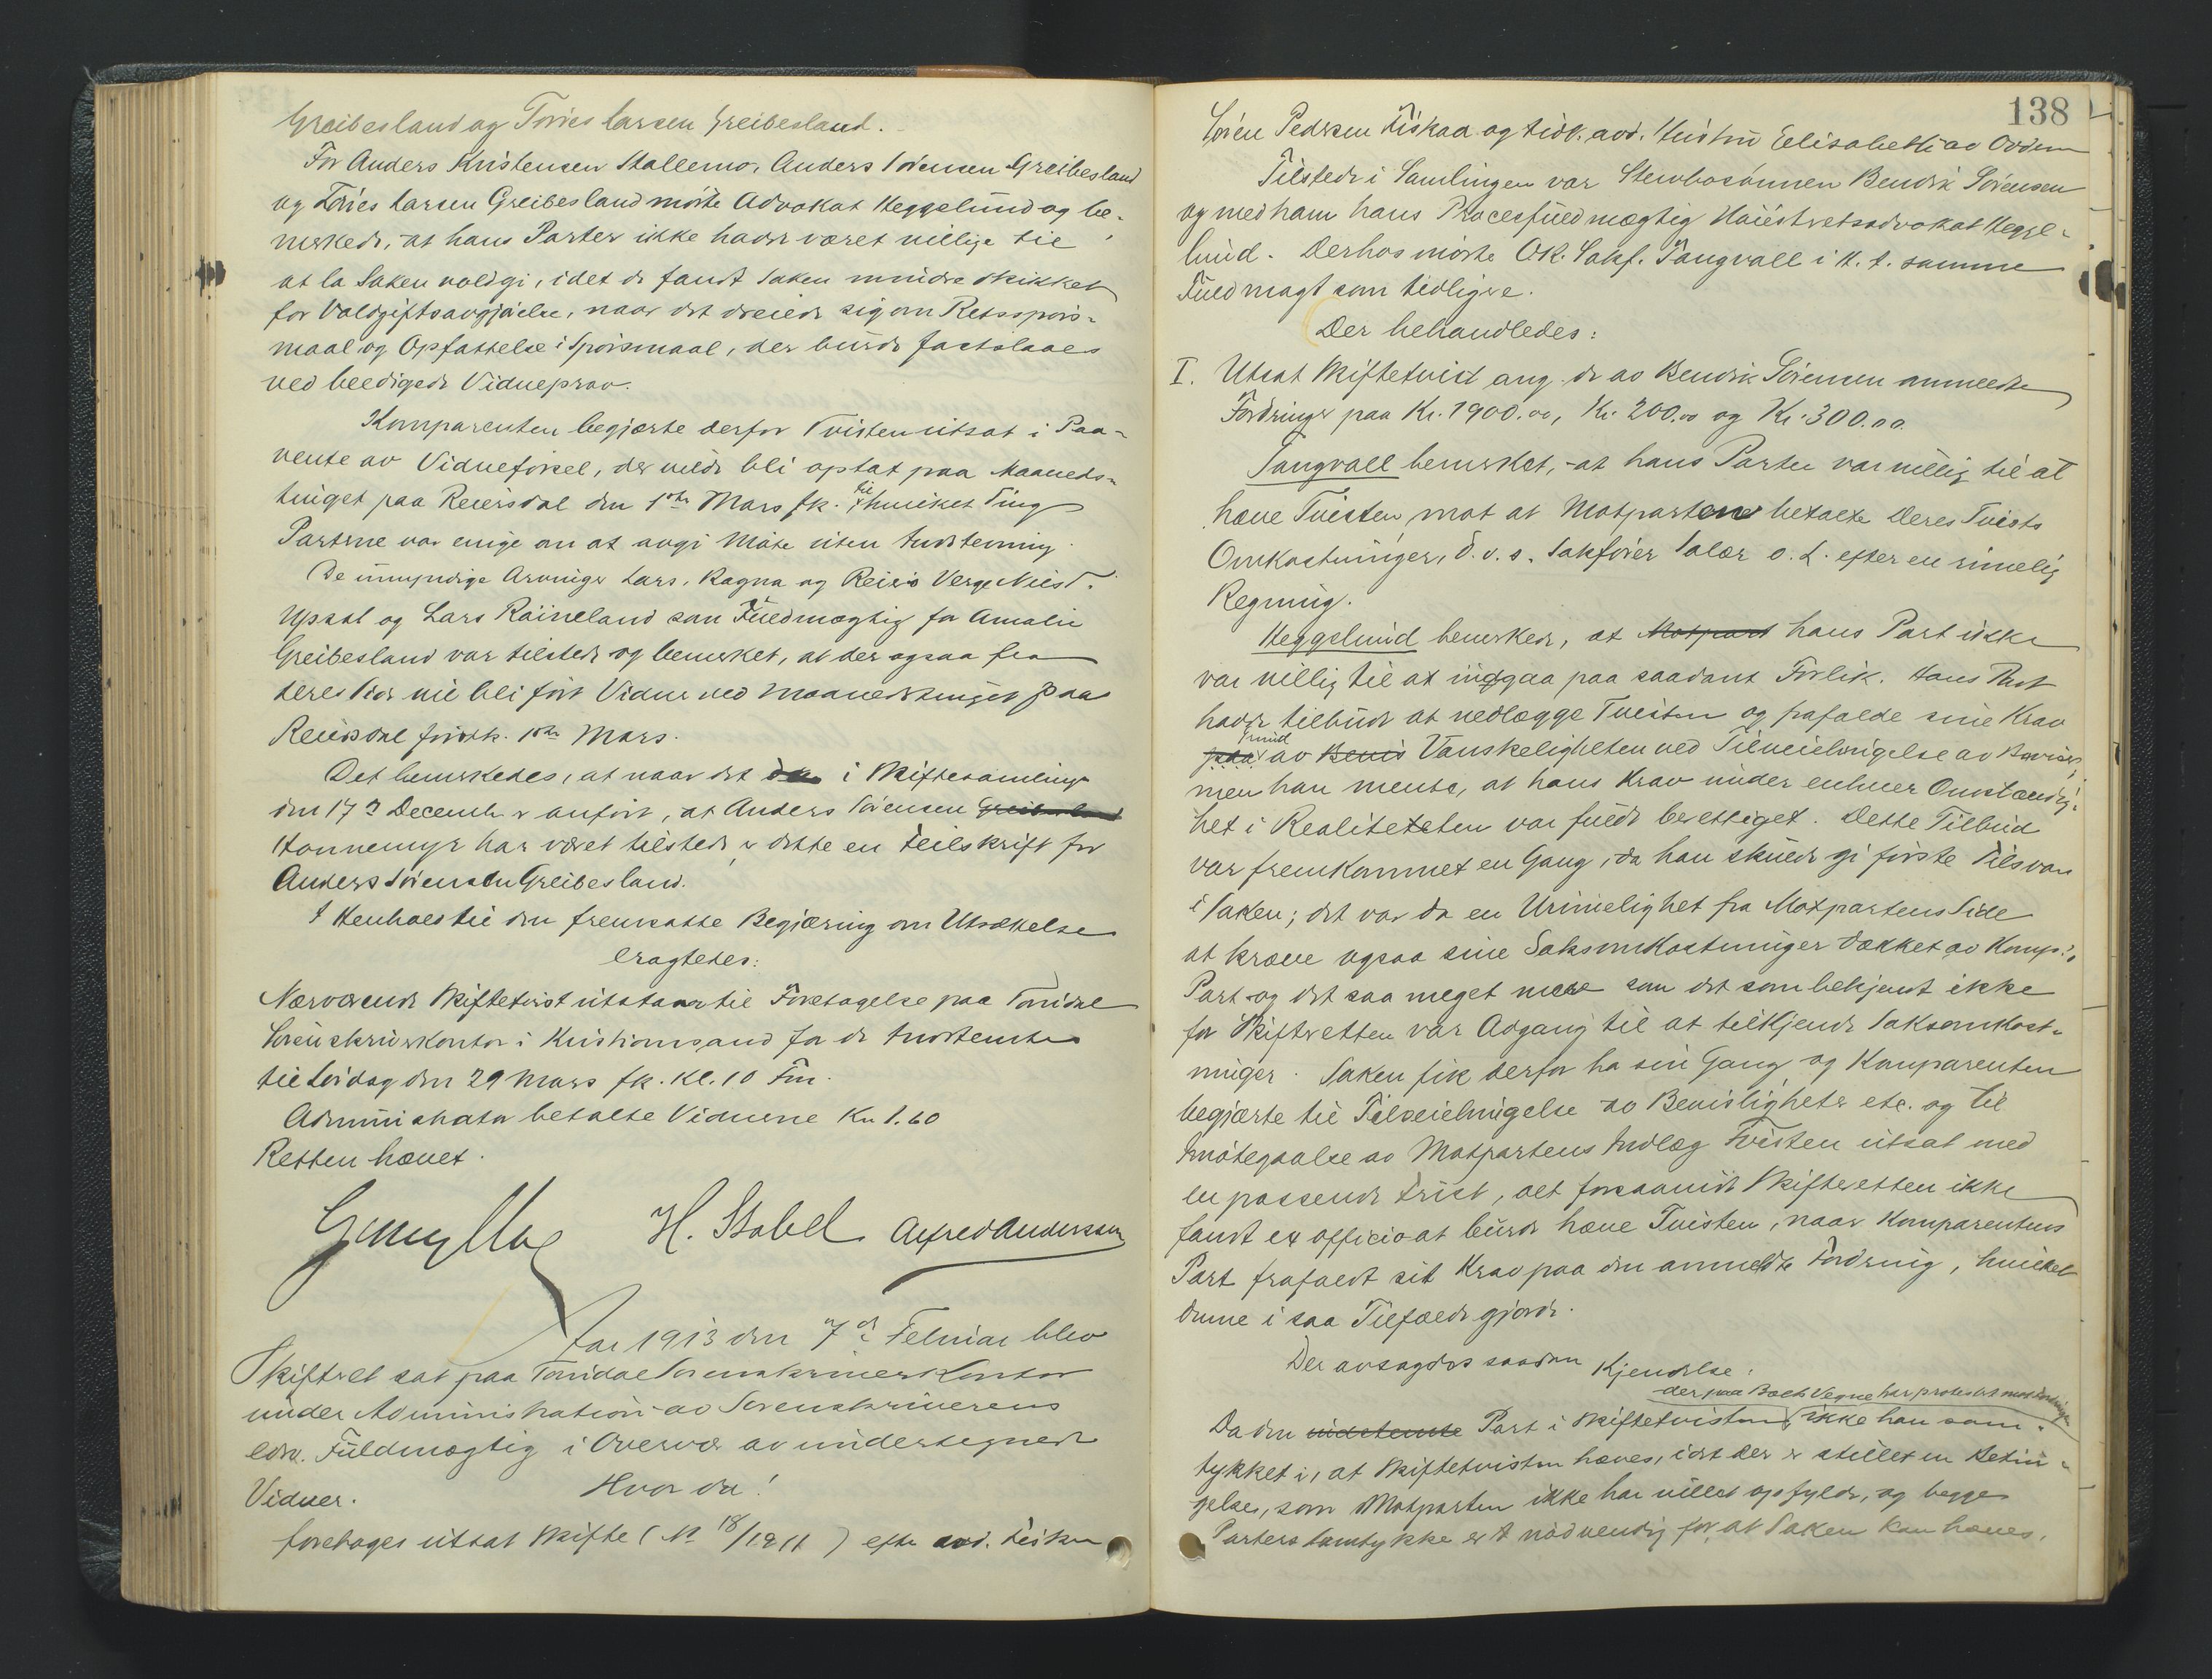 Greibesland og Tories Larsen Greibesland.
For Anders Kristensen Stallemo, Anders Sørensen Greibesland
og Tories Larsen Greibesland møtte Advokat Heggelund og be-
merkede, at hans Parter ikke hadde været villige til
at la Saken voldgi, idet de fandt Saken mindre skikket
for Voldgiftsavgjørelse, naar det dreiede sig om Retsspørs-
maal og Opfattelse i Spørsmaal, der burde fastslaaes
ved beedigede Vidneprov.
Komparenten begjærte derfor Tvisten utsat i Paa-
vente av Vidneførsel, der vilde bli optat paa Maaneds-
tinget paa Reiersdal den 1ste Mars fk. til hvilket Ting
Parterne var enige om at avgi Møte uten Indstevning.
De umyndige Arvinger Lars, Ragna og Reiers Verge Nils T.
Upsal og Lars Røineland som Fuldmægtig for Amalie
Greibesland var tilstede og bemerket, at der ogsaa fra
deres Side vil bli ført Vidner ved Maanedstinget paa
Reiersdal førstk. 1ste Mars.
Det bemerkedes, at naar det i Skiftesamling
den 17de December er anført, at Anders Sørensen Greibesland
Honnemyr har været tilstede er dette en Feilskrift for
Anders Sørensen Greibesland.
I Henhold til den fremsatte Begjæring om Utsættelse
eragtedes:
Nærværende Skiftetvist utstaar til Foretagelse paa Toridal
Sorenskriverkontor i Kristiansand for de Indstevnte
til Lørdag den 29 Mars fk. Kl. 10 Fm.
Administrator betalte Vidnerne Kr. 1.60
Retten hævet.
H. Stabel Alfred Andersen
Aar 1913 den 7de Februar blev
Skifteret sat paa Toridal Sorenskriverkontor
under Administration av Sorenskriverens
edsv. Fuldmægtig i Overvær av undertegnede
Vidner. Hvor da!
foretages utsat Skifte (No 18/1911) efter avd.
138
Søren Pedersen Fiskaa og tidl. avd. Hustru Elisabeth av Oddernes
Tilstede i Samlingen var Stervbosønnen Bendix Sørensen
og med ham hans Procesfuldmægtig Høiesteretsadvokat Hegge-
lund. Derhos møtte O.R. Sakf. Tangvall i H. t. samme
Fuldmagt som tidligere.
Der behandledes:
I. Utsat Skiftetvist ang. de av Bendix Sørensen anmeldte
Fordringer paa Kr. 1900.00, Kr. 200.00 og Kr. 300.00
Tangvall bemerket, at hans Parter var villig til at
hæve Tvisten, mot at Motparten betalte Deres Tvists
Omkostninger, d. v. s. Sakfører Salær o. l. efter en rimelig
Regning.
Heggelund bemerkede, at Motpart hans Part ikke
var villig til at indgaa paa saadant Forlik. Hans Part
hadde tilbudt at nedlægge Tvisten og frafalde sine Krav
paa Grund av Bevis Vanskeligheten ved Tilveiebringelse av Beviser,
men han mente, at hans Krav under enhver Omstændig-
het i Realiteten var fuldt berettiget. Dette Tilbud
var fremkommet en Gang, da han skulde gi første Tilsvar
i Saken; det var da en Urimelighet fra Motpartens Side
at kræve ogsaa sine Saksomkostninger dækket av Komp.s
Part og det saa meget mere som det som bekjent ikke
for Skifteretten var Adgang til at tilkjende Saksomkost-
ninger. Saken fik derfor ha sin Gang og Komparenten
begjærte til Tilveiebringelse av Bevisligheter etc. og til
Imøtegaaelse av Motpartens Indlæg Tvisten utsat med
en passende Frist, alt forsaavidt Skifteretten ikke
fandt ex officio at burde hæve Tvisten, naar Komparentens
Part frafaldt sit Krav paa den anmeldte Fordring, hvilket
denne i saa Tilfælde gjorde.
Der avsagdes saadan Kjendelse:
der paa Boets Vegne har protestert mot Fordringen
Da den indstevnte Part i Skiftetvisten ikke har sam-
tykket i, at Skiftetvisten hæves, idet der er stillet en Betin-
gelse, som Motparten ikke har villet opfylde, og begge
Parters Samtykke er nødvendig for at Saken kan hæves,